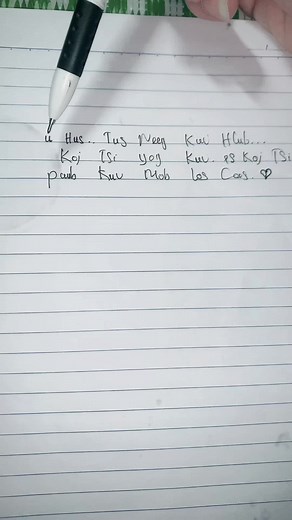 u Hus.. Tus Neeg Kuv Hlub...
Koj Tsi yog Kuv. es Koj Tsi
paub Kuv Mob los Cas. ♡